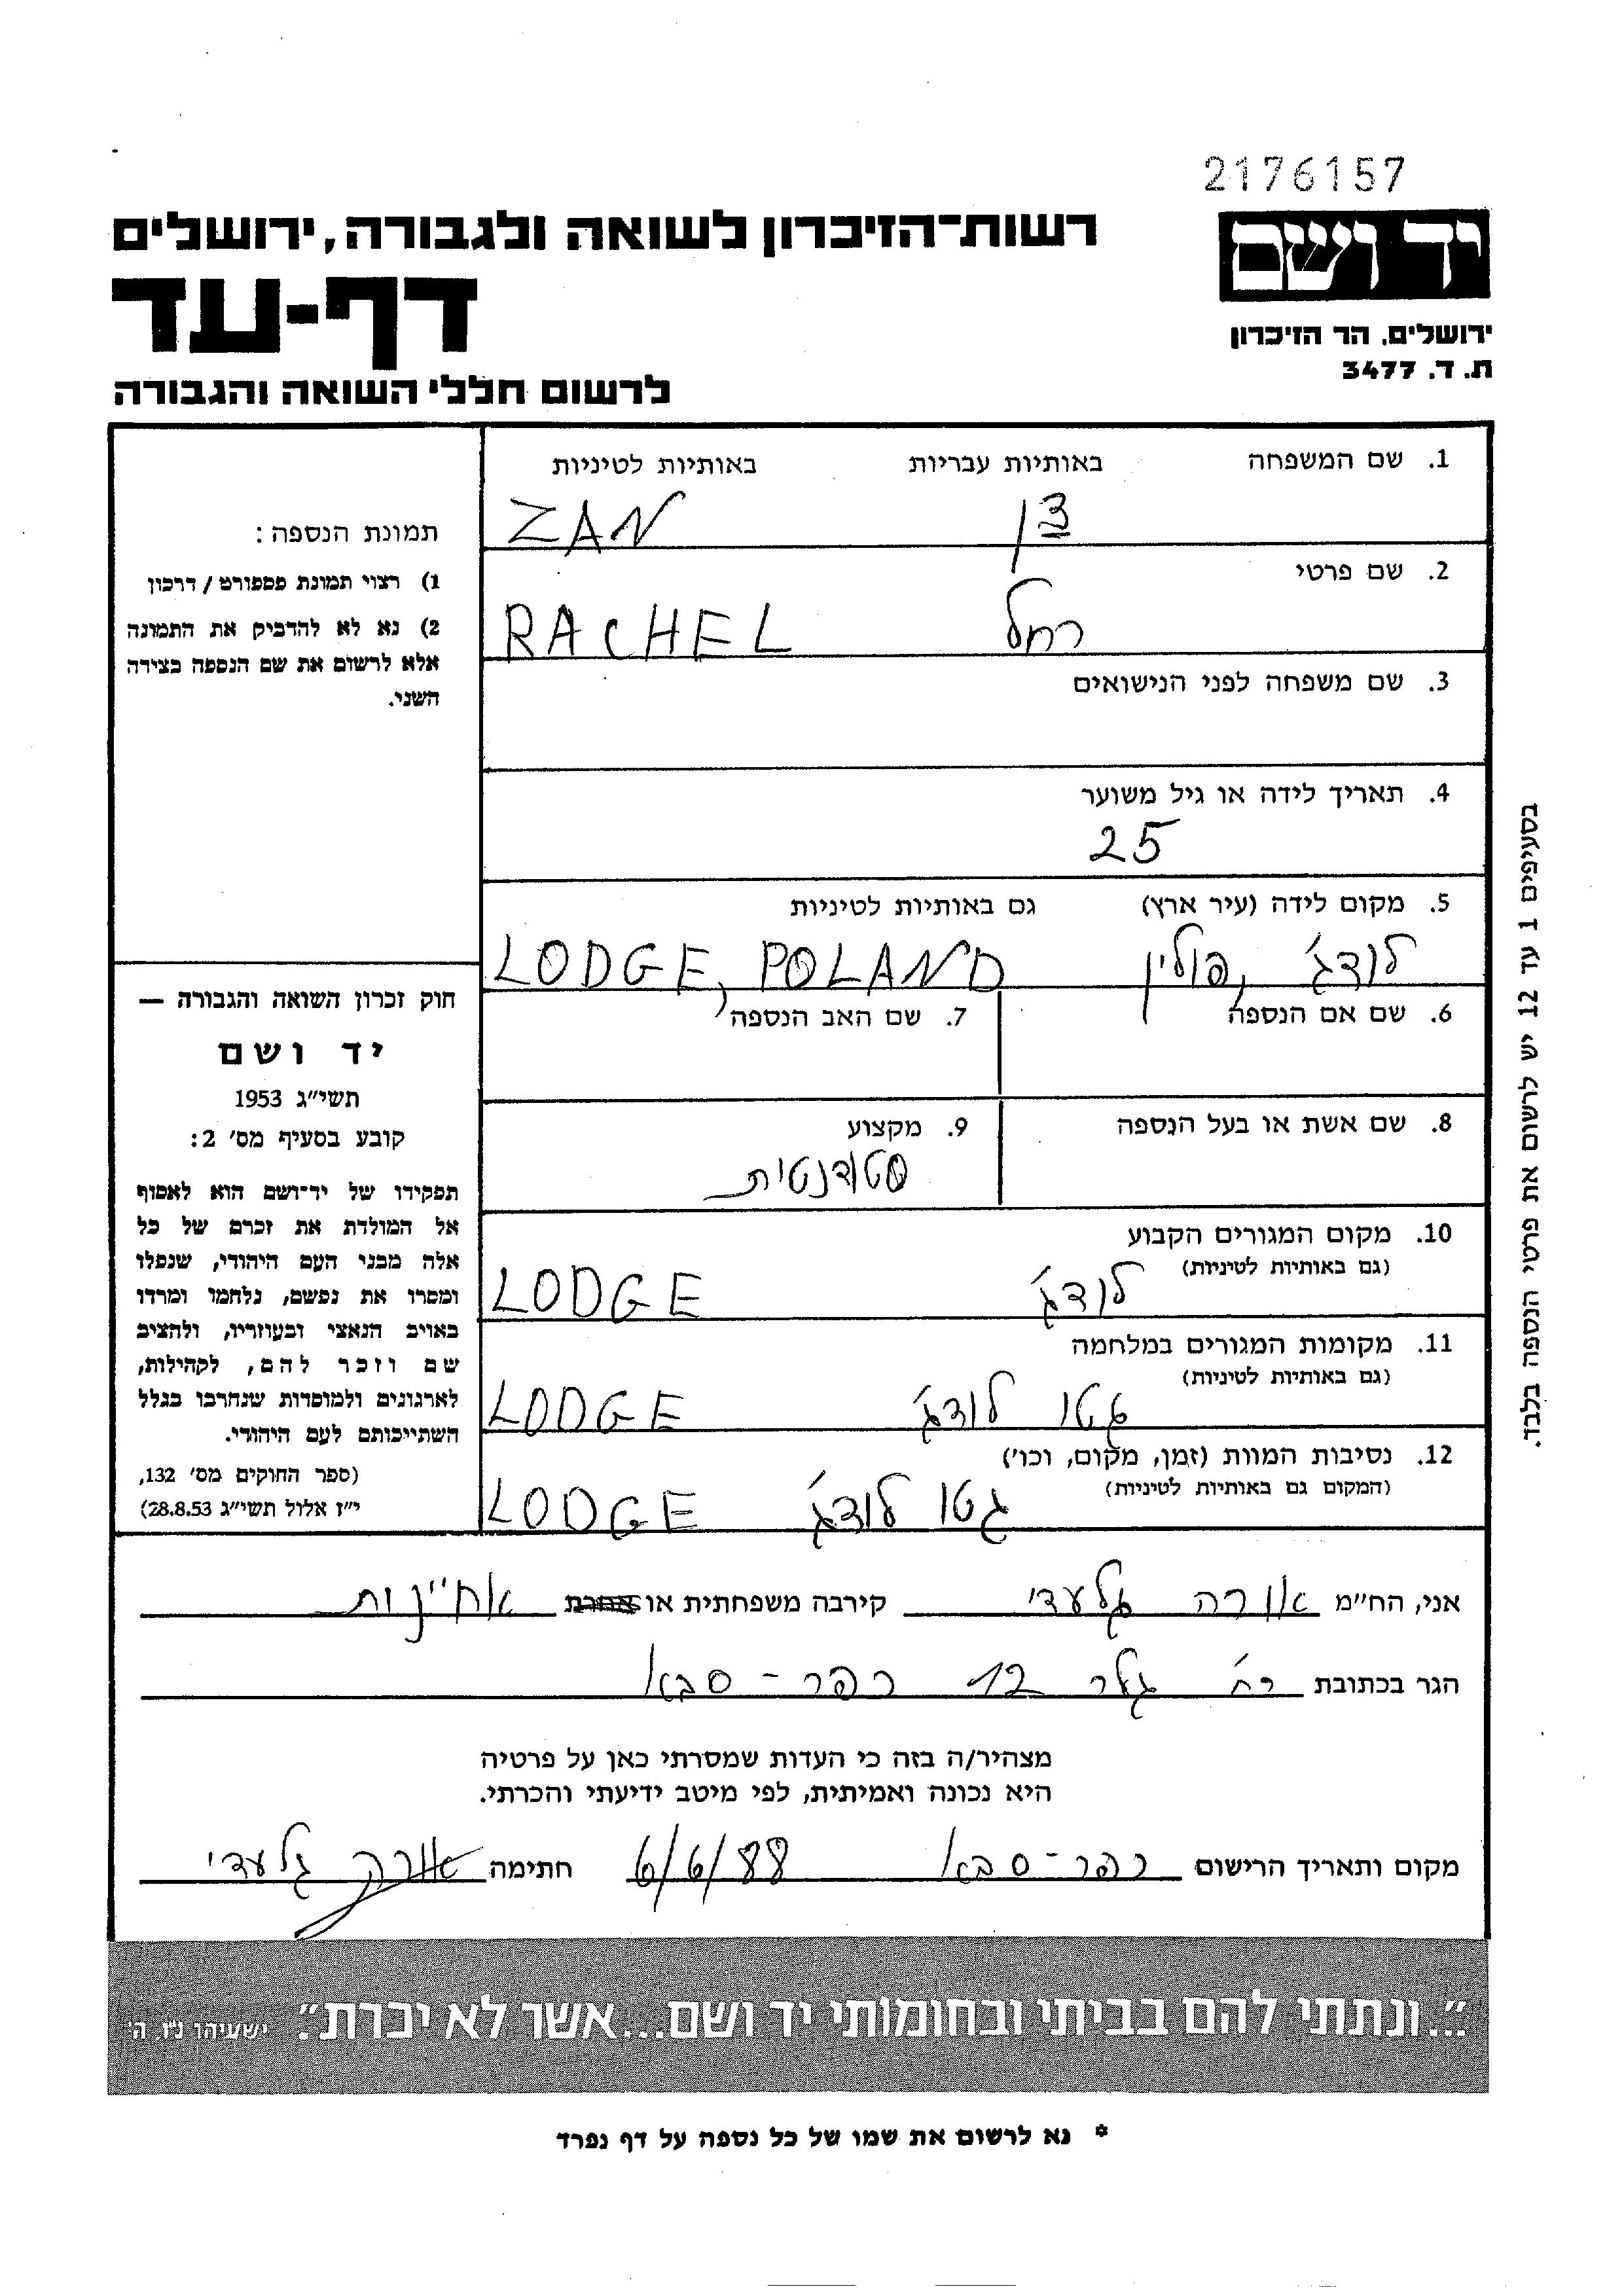 2176157
יד ושם
רשות-הזיכרון לשואה ולגבורה, ירושלים
דף-עד
ירושלים, הר הזיכרון
ת. ד. 3477
לרשום חללי השואה והגבורה
1. שם המשפחה באותיות עבריות באותיות לטיניות
צן ZAN
2. שם פרטי
רחל RACHEL
3. שם משפחה לפני הנישואים
4. תאריך לידה או גיל משוער
25
5. מקום לידה (עיר ארץ) גם באותיות לטיניות
לודג', פולין LODGE, POLAND
6. שם אם הנספה
7. שם האב הנספה
8. שם אשת או בעל הנספה
9. מקצוע
סטודנטית
10. מקום המגורים הקבוע
(גם באותיות לטיניות)
לודג' LODGE
11. מקומות המגורים במלחמה
(גם באותיות לטיניות)
גטו לודג' LODGE
12. נסיבות המוות (זמן, מקום, וכו')
(המקום גם באותיות לטיניות)
גטו לודג' LODGE
תמונת הנספה:
1) רצוי תמונת פספורט / דרכון
2) נא לא להדביק את התמונה
אלא לרשום את שם הנספה בצידה
השני.
חוק זכרון השואה והגבורה —
יד ושם
תשי״ג 1953
קובע בסעיף מס' 2:
תפקידו של יד-ושם הוא לאסוף
אל המולדת את זכרם של כל
אלה מבני העם היהודי, שנפלו
ומסרו את נפשם, נלחמו ומרדו
באויב הנאצי ובעוזריו, ולהציב
שם וזכר להם, לקהילות,
לארגונים ולמוסדות שנחרבו בגלל
השתייכותם לעם היהודי.
(ספר החוקים מס' 132,
י״ז אלול תשי״ג 28.8.53)
בסעיפים 1 עד 12 יש לרשום את פרטי הנספה בלבד.
אני, הח״מ אורה גלעדי קירבה משפחתית או אחרת אחיינות
הגר בכתובת רח' גלר 12 כפר-סבא
מצהיר/ה בזה כי העדות שמסרתי כאן על פרטיה
היא נכונה ואמיתית, לפי מיטב ידיעתי והכרתי.
מקום ותאריך הרישום כפר-סבא 6/6/88 חתימה אורה גלעדי
״...ונתתי להם בביתי ובחומותי יד ושם...אשר לא יכרת״. ישעיהו נ״ו, ה'
* נא לרשום את שמו של כל נספה על דף נפרד